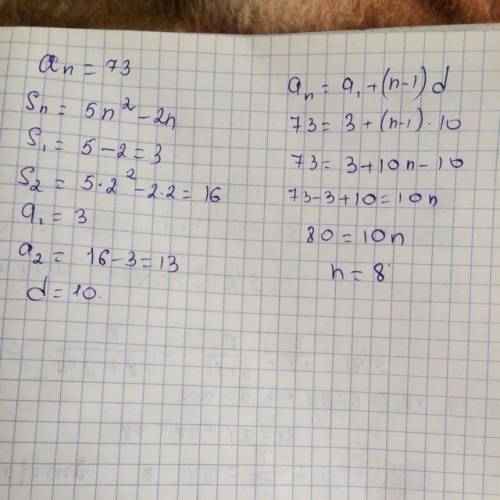 aₙ = 73
Sₙ = 5n² - 2n
S₁ = 5 - 2 = 3
S₂ = 5·2² - 2·2 = 16
a₁ = 3
a₂ = 16 - 3 = 13
d = 10.
aₙ = a₁ + (n-1) d
73 = 3 + (n-1) · 10
73 = 3 + 10n - 10
73 - 3 + 10 = 10n
80 = 10n
n = 8